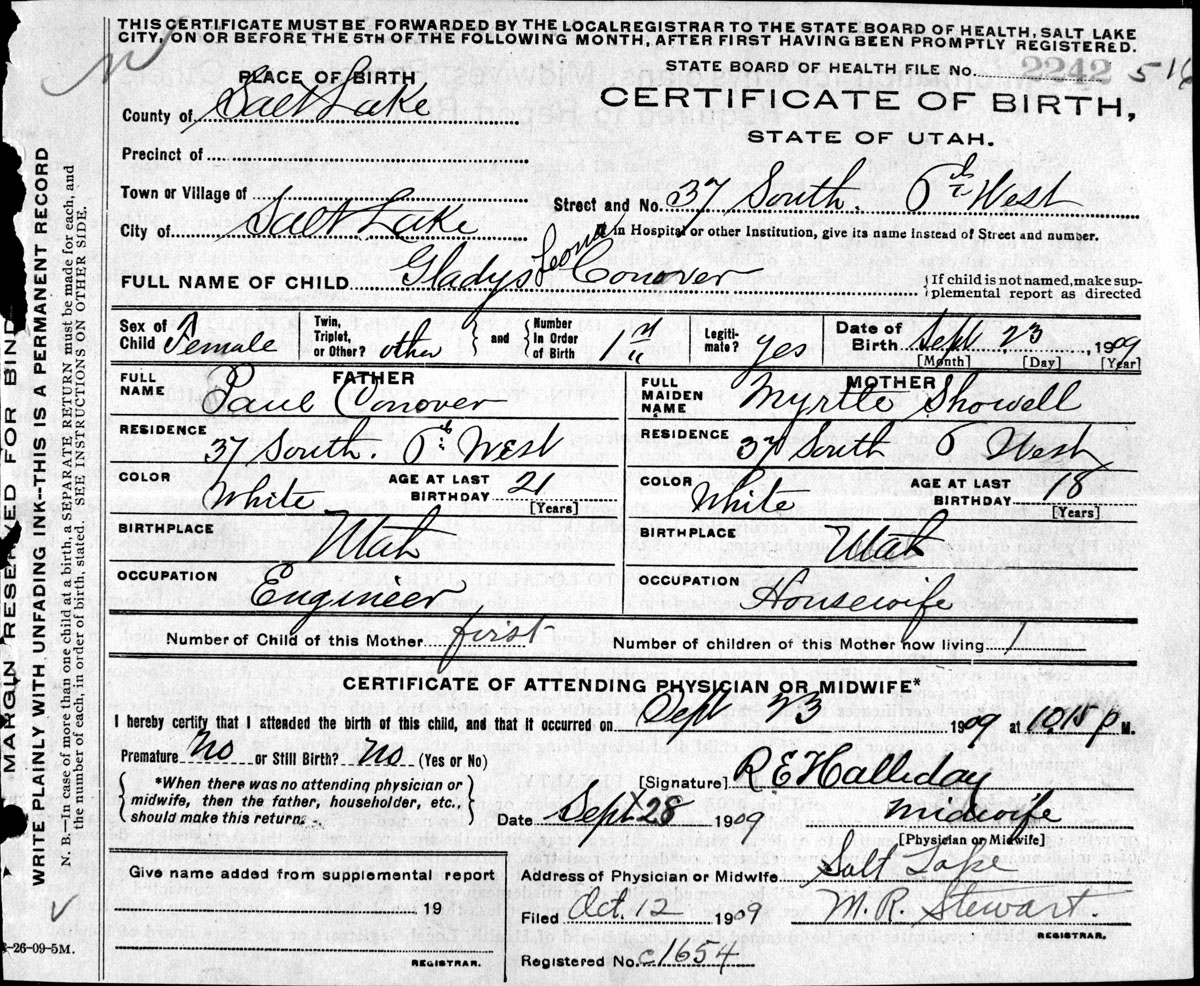 THIS CERTIFICATE MUST BE FORWARDED BY THE LOCAL REGISTRAR TO THE STATE BOARD OF HEALTH, SALT LAKE
CITY, ON OR BEFORE THE 5TH OF THE FOLLOWING MONTH, AFTER FIRST HAVING BEEN PROMPTLY REGISTERED.
STATE BOARD OF HEALTH FILE No. 2242 516
PLACE OF BIRTH
CERTIFICATE OF BIRTH,
County of Salt Lake
STATE OF UTAH.
Precinct of
Town or Village of
Street and No. 37 South 6th West
City of Salt Lake
In Hospital or other Institution, give its name instead of Street and number.
FULL NAME OF CHILD Gladys Leona Conover
If child is not named, make sup-
plemental report as directed
Sex of Child Female
Twin, Triplet, or Other? other
and Number In Order of Birth 1st
Legiti-mate? yes
Date of Birth Sept 23, 1909
[Month] [Day] [Year]
FATHER
FULL NAME Paul Conover
RESIDENCE 37 South. 6th West
COLOR White AGE AT LAST BIRTHDAY 21
[Years]
BIRTHPLACE Utah
OCCUPATION Engineer
MOTHER
FULL MAIDEN NAME Myrtle Showell
RESIDENCE 37 South 6 West
COLOR White AGE AT LAST BIRTHDAY 18
[Years]
BIRTHPLACE Utah
OCCUPATION Housewife
Number of Child of this Mother first Number of children of this Mother now living 1
CERTIFICATE OF ATTENDING PHYSICIAN OR MIDWIFE*
I hereby certify that I attended the birth of this child, and that it occurred on Sept 23 1909 at 10,15 p M.
Premature No or Still Birth? No (Yes or No)
*When there was no attending physician or
midwife, then the father, householder, etc.,
should make this return.
[Signature] R E Halliday
Date Sept 28 1909 midwife
[Physician or Midwife]
Give name added from supplemental report
19
REGISTRAR.
Address of Physician or Midwife Salt Lake
Filed Oct. 12 1909 M. R. Stewart.
REGISTRAR.
Registered No. c1654
MARGIN RESERVED FOR BIND
WRITE PLAINLY WITH UNFADING INK--THIS IS A PERMANENT RECORD
N. B.—In case of more than one child at a birth, a SEPARATE RETURN must be made for each, and
the number of each, in order of birth, stated. SEE INSTRUCTIONS ON OTHER SIDE.
-26-09-5M.